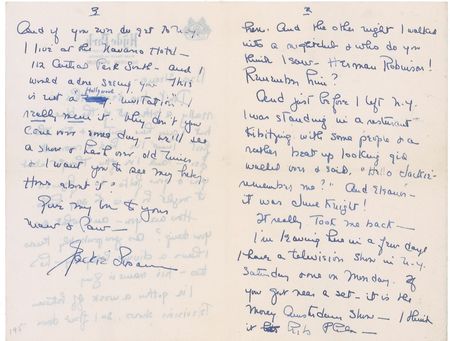 3
And if you ever do get to N.Y.
I live at the Navarro Hotel —
112 Central Park South — and I
would adore seeing you. This
is not a Hollywood invitation
really mean it. Why don't you
come over some day — we'll see
a show & hash over old times.
I want you to see my baby.
How about it?
Give my love to your
Maw & Paw —
Jackie Susann
2
here. And the other night I walked
into a nightclub & who do you
think I saw — Herman Robinson!
Remember him?
And just before I left N.Y.
I was standing in a restaurant
Kibitzing with some people & a
rather beat up looking girl
walked over & said, "Hello Jackie —
remember me?" And Eleanor —
it was June Knight!
It really took me back —
I'm leaving here in a few days
I have a television show in N.Y.
Saturday & one on Monday. If
you get near a set — it is the
Morey Amsterdam Show — I think
it
195